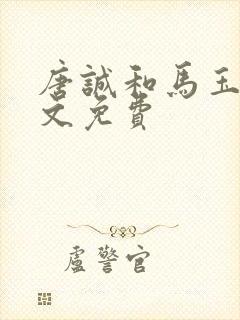 唐誠和馬玉
文免費
盧警官